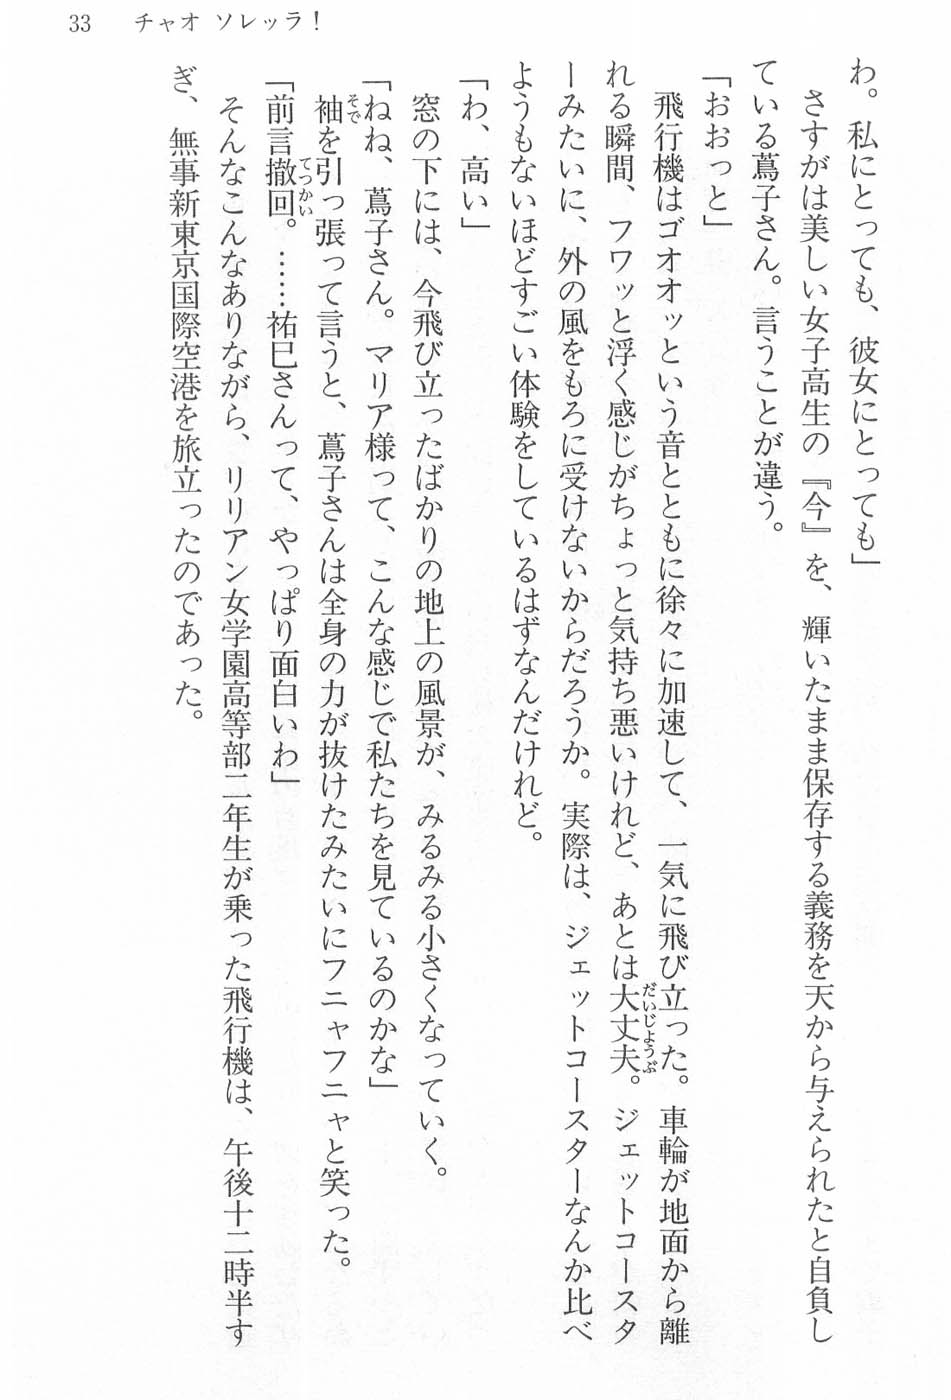 33　チャオ ソレッラ！
わ。私にとっても、彼女にとっても」
　さすがは美しい女子高生の『今』を、輝いたまま保存する義務を天から与えられたと自負し
ている蔦子さん。言うことが違う。
「おおっと」
　飛行機はゴオオッという音とともに徐々に加速して、一気に飛び立った。車輪が地面から離
れる瞬間、フワッと浮く感じがちょっと気持ち悪いけれど、あとは大丈夫。ジェットコースタ
だいじょうぶ
ーみたいに、外の風をもろに受けないからだろうか。実際は、ジェットコースターなんか比べ
ようもないほどすごい体験をしているはずなんだけれど。
「わ、高い」
　窓の下には、今飛び立ったばかりの地上の風景が、みるみる小さくなっていく。
「ねね、蔦子さん。マリア様って、こんな感じで私たちを見ているのかな」
　袖を引っ張って言うと、蔦子さんは全身の力が抜けたみたいにフニャフニャと笑った。
そで
「前言撤回。……祐巳さんって、やっぱり面白いわ」
てつかい
　そんなこんなありながら、リリアン女学園高等部二年生が乗った飛行機は、午後十二時半す
ぎ、無事新東京国際空港を旅立ったのであった。